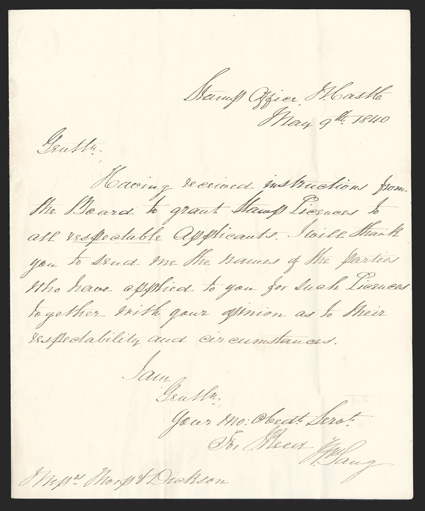 Stamp Office N.Castle
May 9th 1840
Gentln.
Having received instructions from
the Board to grant Stamp Licences to
all respectable Applicants, I will thank
you to send me the names of the parties
who have applied to you for such Licences
together with your opinion as to their
respectability and circumstances.
I am
Gentln.
Your Mo: Obedt. Servt.
For
Messrs Thorp & Dickson